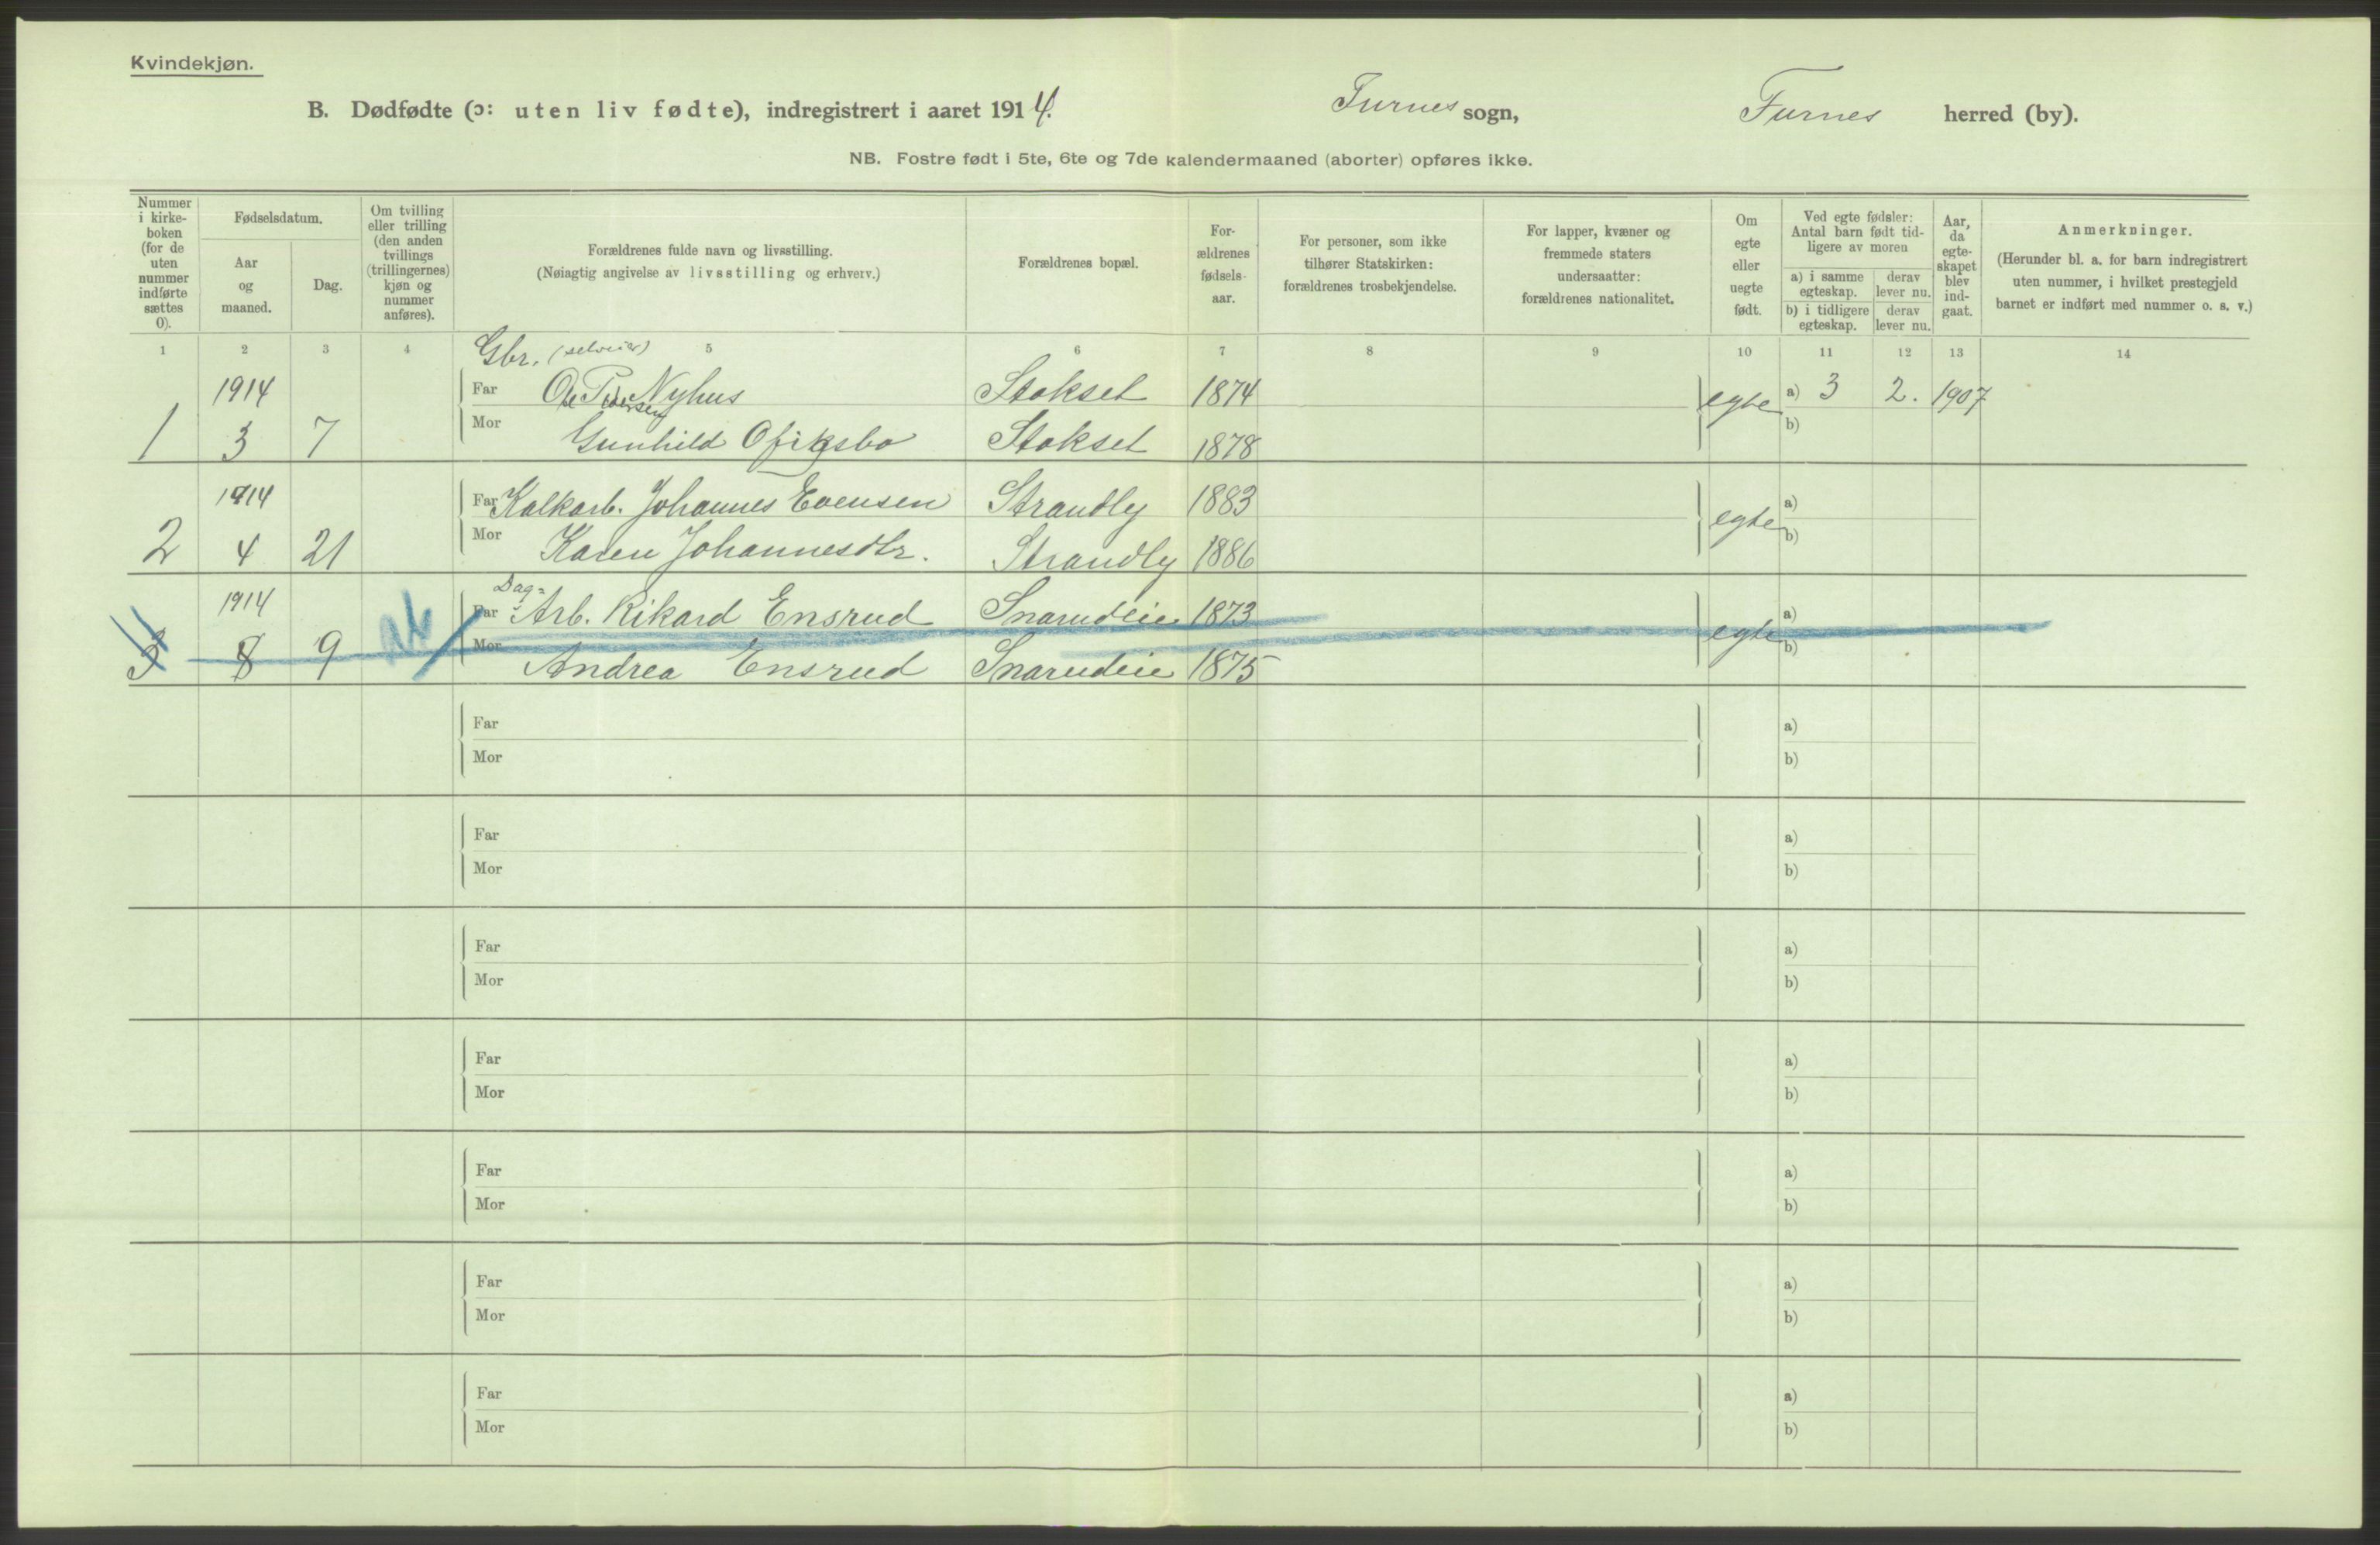 Kvindekjøn.
B. Dødfødte (ɔ: uten liv fødte), indregistrert i aaret 1914. Furnes sogn, Furnes herred (by).
NB. Fostre født i 5te, 6te og 7de kalendermaaned (aborter) opføres ikke.
Nummer i kirke- boken (for de uten nummer indførte sættes 0).
Fødselsdatum.
Aar og maaned.
Dag.
Om tvilling eller trilling (den anden tvillings (trillingernes) kjøn og nummer anføres).
Forældrenes fulde navn og livsstilling.
(Nøiagtig angivelse av livsstilling og erhverv.)
Forældrenes bopæl.
For- ældrenes fødsels- aar.
For personer, som ikke tilhører Statskirken: forældrenes trosbekjendelse.
For lapper, kvæner og fremmede staters undersaatter: forældrenes nationalitet.
Om egte eller uegte født.
Ved egte fødsler: Antal barn født tid- ligere av moren
a) i samme egteskap. derav lever nu.
b) i tidligere egteskap. derav lever nu.
Aar, da egte- skapet blev ind- gaat.
Anmerkninger.
(Herunder bl. a. for barn indregistrert uten nummer, i hvilket prestegjeld barnet er indført med nummer o. s. v.)
1 2 3 4 5 6 7 8 9 10 11 12 13 14
Gbr. (selveier)
1914 Far Ole Pedersen Nyhus Stokset 1874 egte a) 3 2. 1907
1 3 7 Mor Gunhild Stokset 1878 b)
1914 Far Kalkarb. Johannes Evensen Strandly 1883 egte a)
2 4 21 Mor Karen Johannesdtr. Strandly 1886 b)
Dag-
1914 Far Arb. Rikard Ensrud Snarudeie 1873 egte a)
3 8 9 Mor Andrea Ensrud Snarudeie 1875 b)
Far a)
Mor b)
Far a)
Mor b)
Far a)
Mor b)
Far a)
Mor b)
Far a)
Mor b)
Far a)
Mor b)
Far a)
Mor b)